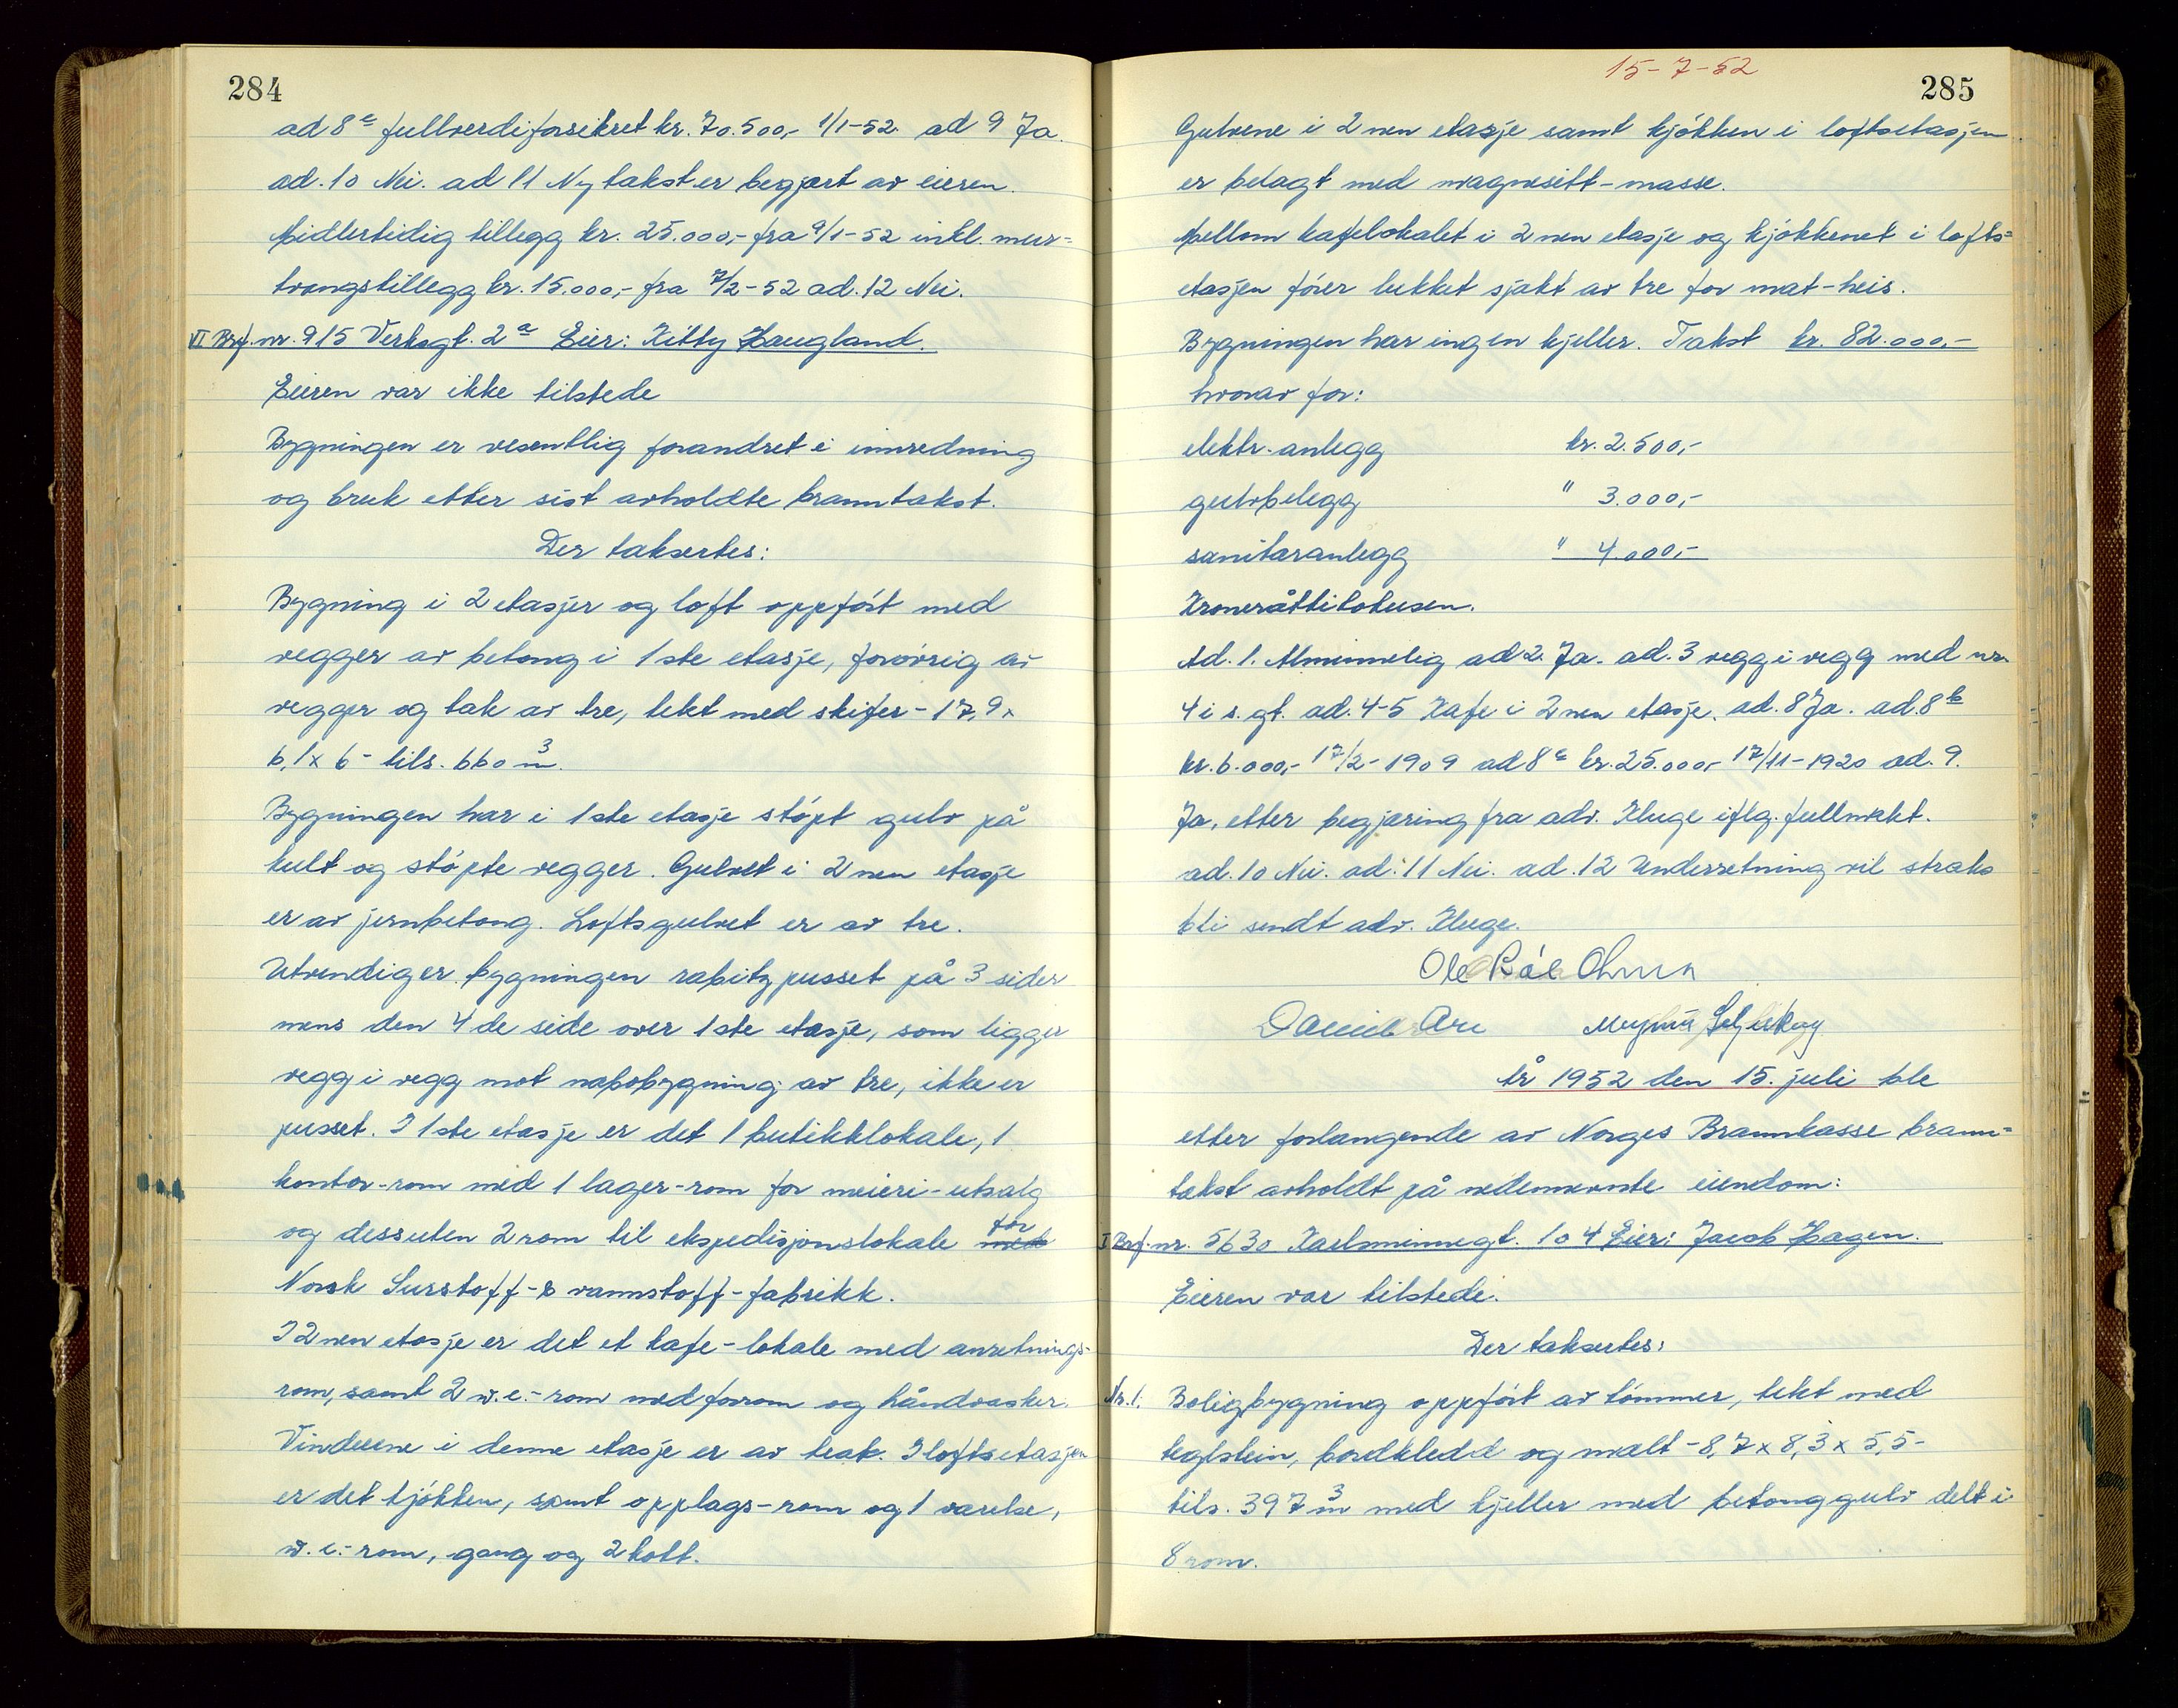 284
ad 8ᶜ fullverdiforsikret kr. 70.500,- 1/1-52. ad 9 Ja.
ad. 10 Nei. ad 11 Ny takst er begjært av eieren.
Midlertidig tillegg kr. 25.000,- fra 9/1-52 inkl. mur=
tvangstillegg kr. 15.000,- fra 7/2-52 ad. 12 Nei.
VI Brf. nr. 915 Verksgt. 2ᵃ Eier: Kitty Haugland.
Eieren var ikke tilstede
Bygningen er vesentlig forandret i innredning
og bruk etter sist avholdte branntakst.
Der taksertes:
Bygning i 2 etasjer og loft oppført med
vegger av betong i 1ste etasje, forøvrig av
vegger og tak av tre, tekt med skifer - 17,9 x
6,1 x 6 - tils. 660 m³.
Bygningen har i 1ste etasje støpt gulv på
kult og støpte vegger. Gulvet i 2nen etasje
er av jernbetong. Loftsgulvet er av tre.
Utvendig er bygningen rabitz pusset på 3 sider
mens den 4de side over 1ste etasje, som ligger
vegg i vegg mot nabobygning av tre, ikke er
pusset. I 1ste etasje er det 1 butikklokale, 1
kontor-rom med 1 lager-rom for meieri-utsalg
og dessuten 2 rom til ekspedisjonslokale med for
Norsk Surstoff- & vannstoff-fabrikk.
I 2nen etasje er det et kafe-lokale med anretnings-
rom, samt 2 w.c.-rom med forrom og håndvasker.
Vinduene i denne etasje er av teak. I loftsetasjen
er det kjøkken, samt opplags-rom og 1 værelse,
w.c.-rom, gang og 2 kott.
15-7-52
285
Gulvene i 2nen etasje samt kjøkken i loftsetasjen
er belagt med magnesitt-masse.
Mellom kafelokalet i 2nen etasje og kjøkkenet i lofts=
etasjen fører lukket sjakt av tre for mat-heis.
Bygningen har ingen kjeller. Takst kr. 82.000,-
hvorav for:
elektr. anlegg kr. 2.500,-
gulvbelegg " 3.000,-
sanitæranlegg " 4.000,-
Kroneråttitotusen.
Ad. 1. Alminnelig ad 2. Ja. ad. 3 vegg i vegg med nr.
4 i s. gt. ad. 4-5 Kafe i 2nen etasje. ad. 8 Ja. ad. 8ᵇ
kr. 6.000,- 17/2-1909 ad 8ᶜ kr. 25.000,- 17/11-1920 ad. 9.
Ja, etter begjæring fra adv. Kluge iflg. fullmakt.
ad. 10 Nei. ad. 11 Nei. ad. 12 Underretning vil straks
bli sendt adv. Kluge.
Ole
Daniel Are
År 1952 den 15. juli ble
etter forlangende av Norges Brannkasse brann=
takst avholdt på nedennevnte eiendom:
I Brf. nr. 5630 Karlsminnegt. 104 Eier: Jacob Hagen.
Eieren var tilstede.
Der taksertes:
Nr. 1. Boligbygning oppført av tømmer, tekt med
teglstein, bordkledd og malt - 8,7 x 8,3 x 5,5 -
tils. 397 m³ med kjeller med betonggulv delt i
8 rom.